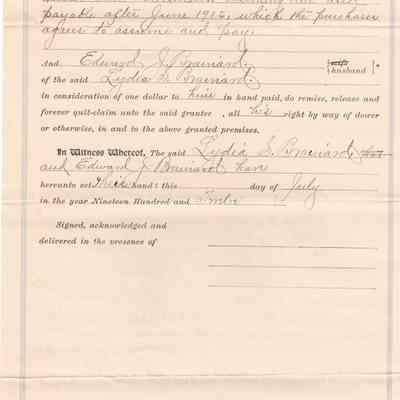 payable after June 1912, which the purchaser
agrees to assume and pay.
And Edward J. Brainard, wife husband
of the said Lydia S. Brainard,
in consideration of one dollar to him in hand paid, do remise, release and
forever quit-claim unto the said grantee, all his right by way of dower
or otherwise, in and to the above granted premises.
In Witness Whereof, The said Lydia S. Brainard,
and Edward J. Brainard have
hereunto set their hand s this day of July
in the year Nineteen Hundred and Twelve
Signed, acknowledged and
delivered in the presence of